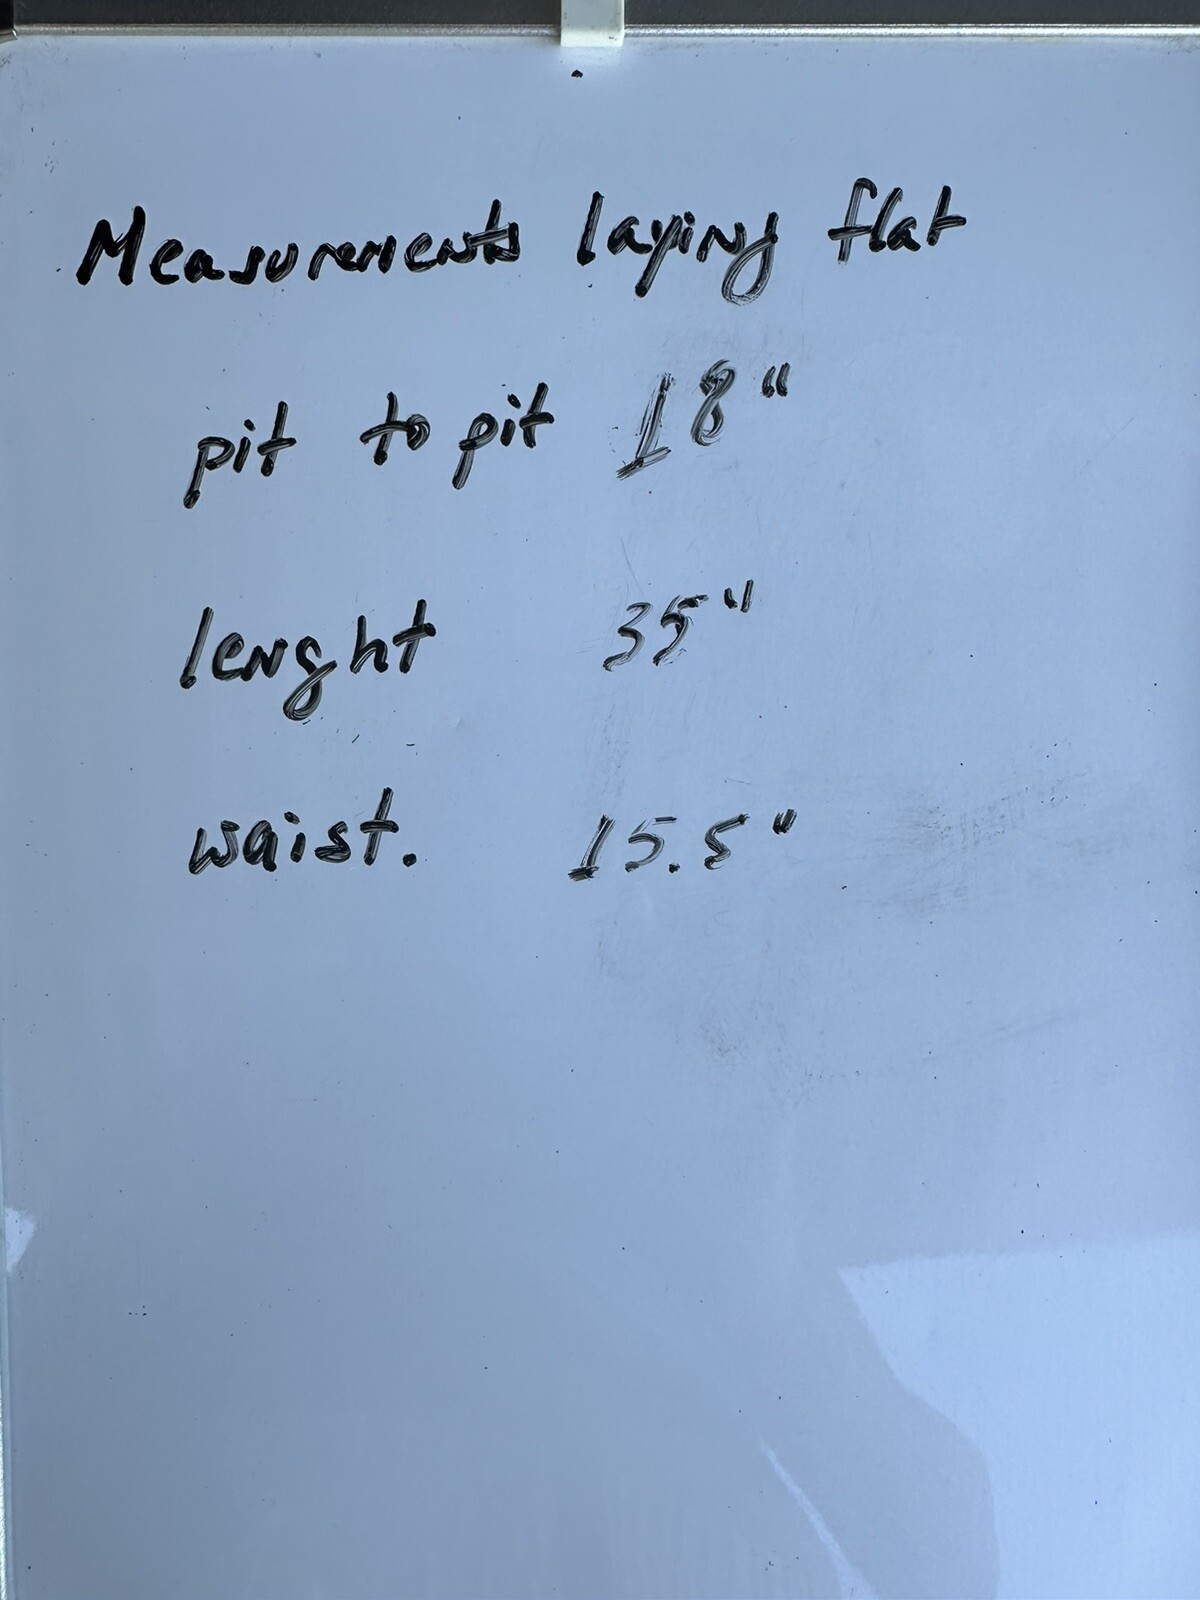 Measurements laying flat
pit to pit 18"
lenght 35"
waist. 15.5"